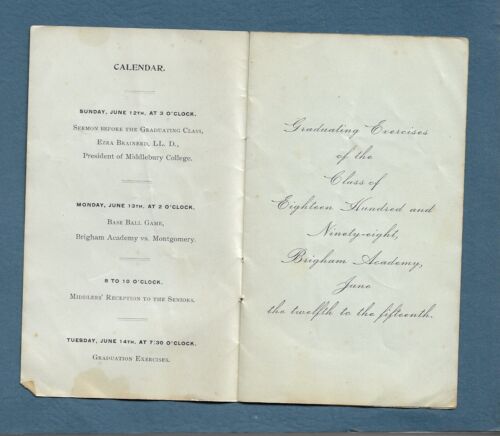 CALENDAR.
SUNDAY, JUNE 12TH, AT 3 O'CLOCK.
SERMON BEFORE THE GRADUATING CLASS,
EZRA BRAINERD, LL. D.,
President of Middlebury College.
MONDAY, JUNE 13TH, AT 2 O'CLOCK.
BASE BALL GAME,
Brigham Academy vs. Montgomery.
8 TO 10 O'CLOCK.
MIDDLERS' RECEPTION TO THE SENIORS.
TUESDAY, JUNE 14TH, AT 7:30 O'CLOCK.
GRADUATION EXERCISES.
Graduating Exercises
of the
Class of
Eighteen Hundred and
Ninety-eight,
Brigham Academy,
June
the twelfth to the fifteenth.